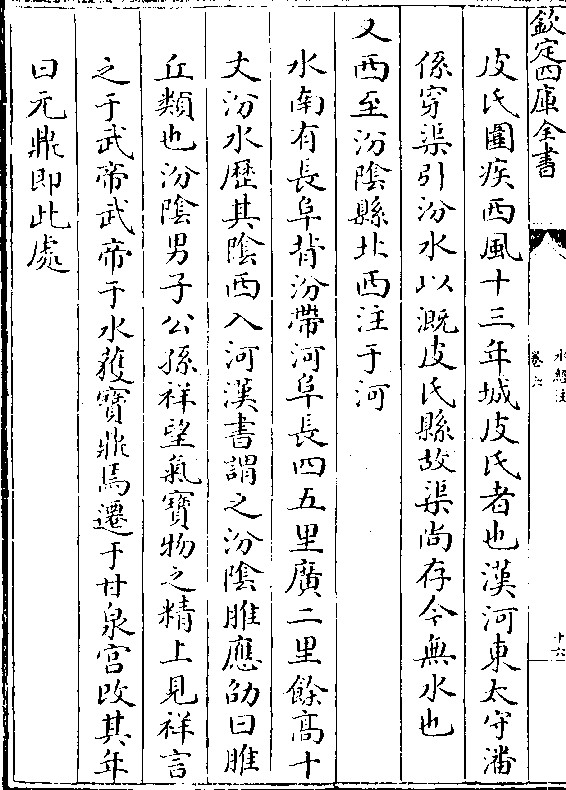 欽定四庫全書
水經注
卷六
十六
皮氏圍疾西風十三年城皮氏者也漢河東太守潘
係穿渠引汾水以溉皮氏縣故渠尚存今無水也
又西至汾陰縣北西注于河
水南有長阜背汾帶河阜長四五里廣二里餘髙十
丈汾水歷其陰西入河漢書謂之汾陰脽應劭曰脽
丘類也汾陰男子公孫祥望氣寶物之精上見祥言
之于武帝武帝于水獲寶鼎焉遷于甘泉宫改其年
曰元鼎即此處